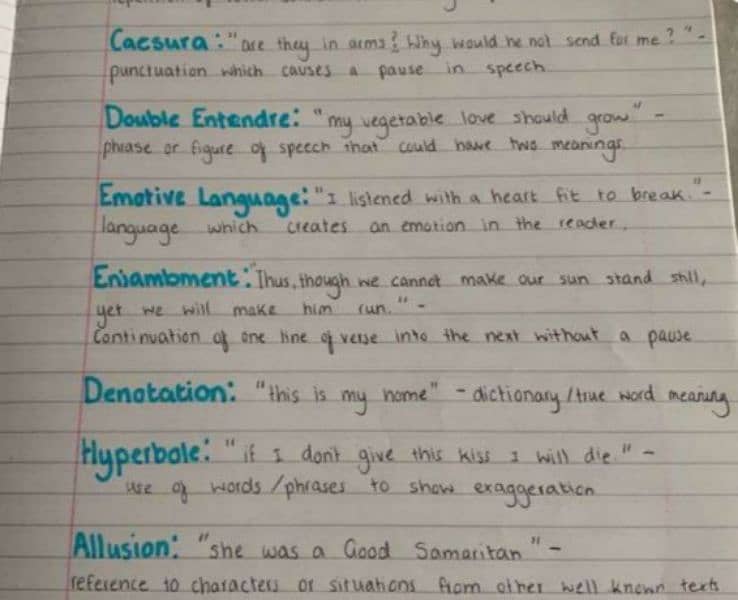 Caesura: "are they in arms? Why would he not send for me?" -
punctuation which causes a pause in speech
Double Entendre: "my vegetable love should grow" -
phrase or figure of speech that could have two meanings
Emotive Language: "I listened with a heart fit to break." -
language which creates an emotion in the reader.
Enjambment: "Thus, though we cannot make our sun stand still,
yet we will make him run." -
Continuation of one line of verse into the next without a pause
Denotation: "this is my home" - dictionary/true word meaning
Hyperbole: "if I don't give this kiss I will die." -
use of words/phrases to show exaggeration
Allusion: "she was a Good Samaritan" -
reference to characters or situations from other well known texts